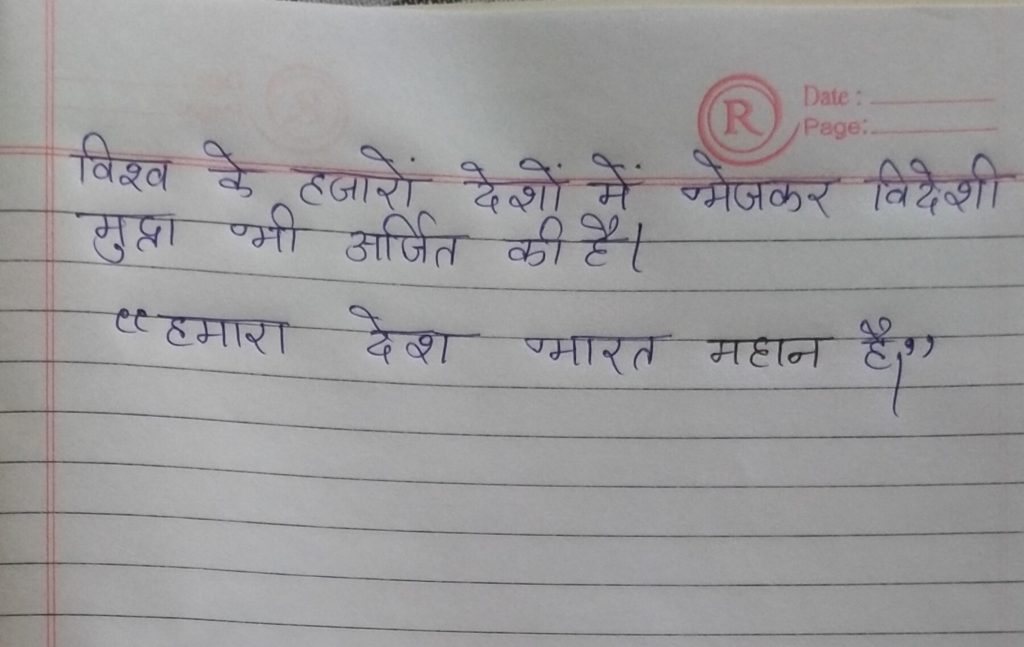 R
Date :
Page:
विश्व के हजारों देशों में भेजकर विदेशी
मुद्रा भी अर्जित की है।
“हमारा देश भारत महान है,”